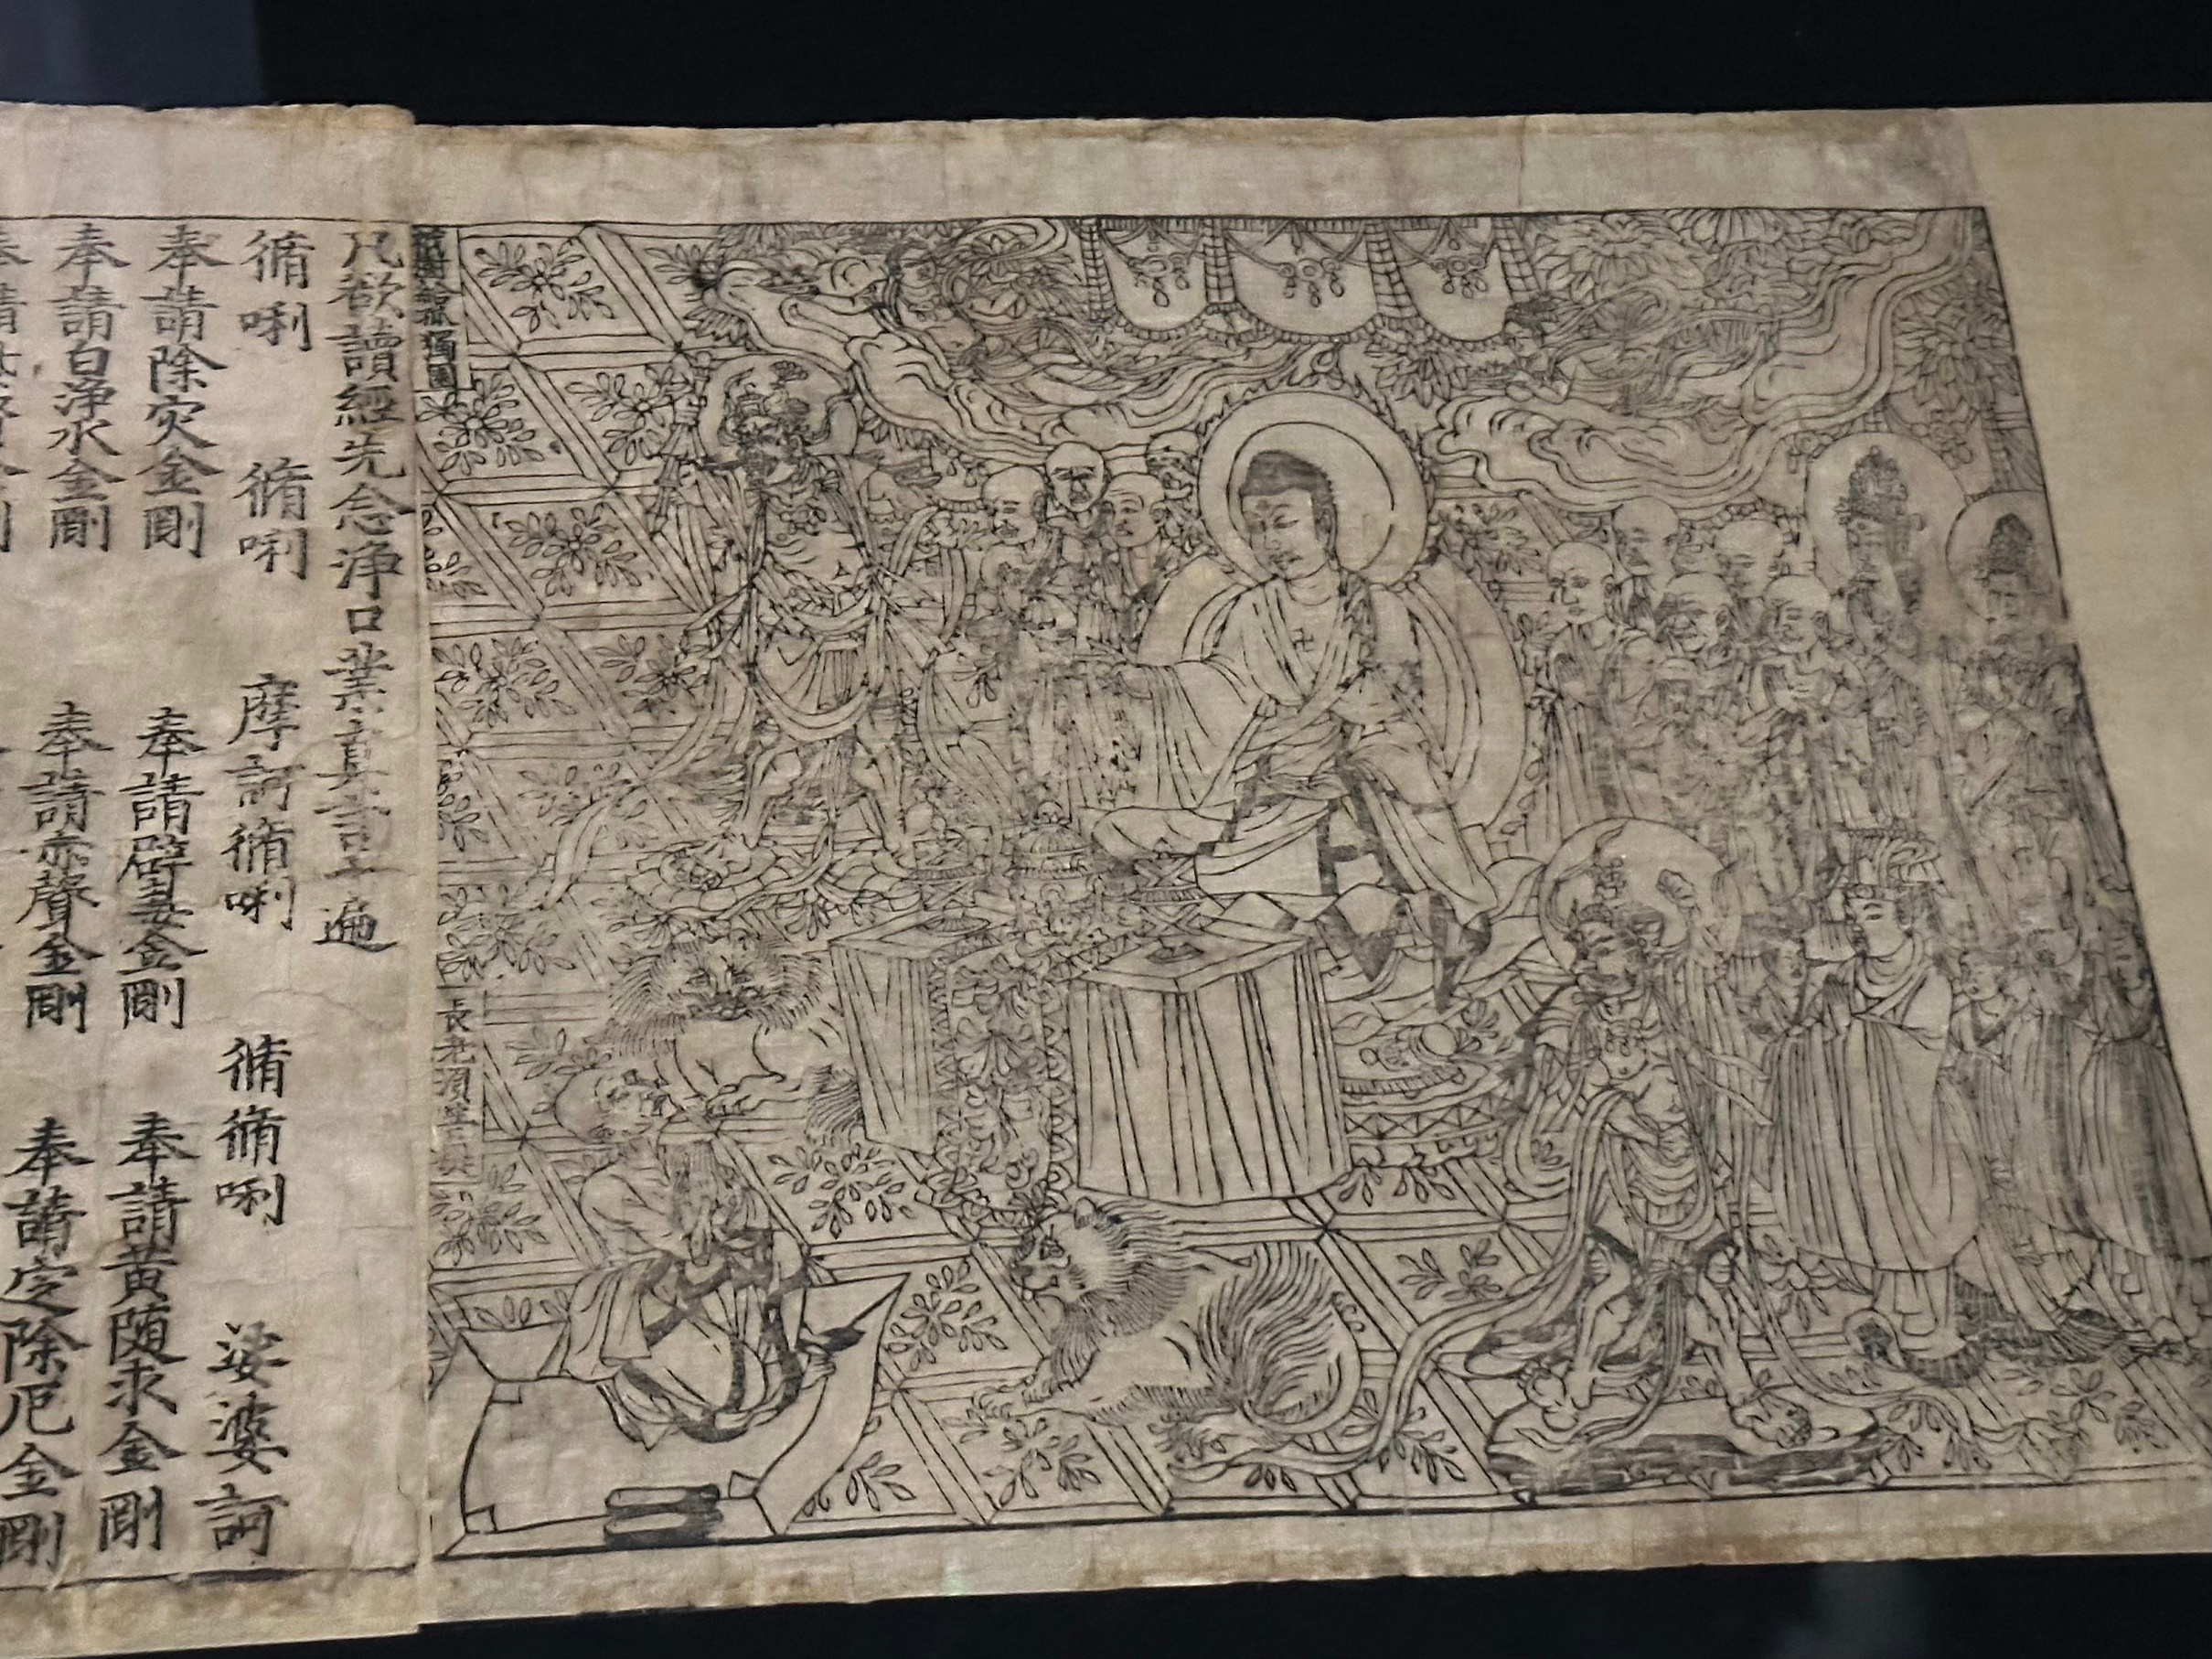 祇樹給孤獨園
長老須菩提
凡欲讀經先念淨口業真言一遍
脩唎 脩唎 摩訶脩唎 脩脩唎 娑婆訶
奉請除灾金剛 奉請辟毒金剛 奉請黃随求金剛
奉請白淨水金剛 奉請赤聲金剛 奉請定除厄金剛